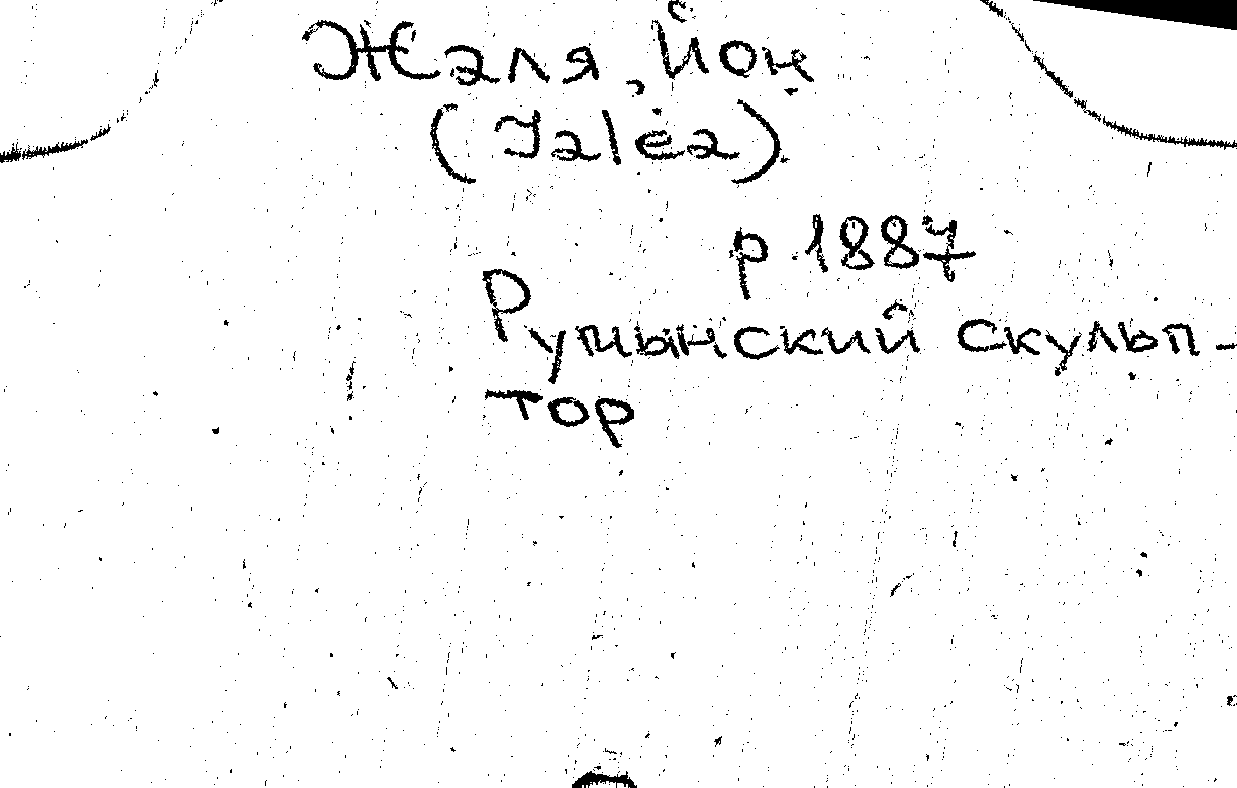 Жаля, Йон
(Jalea).
р. 1887
Румынский скульп-
тор